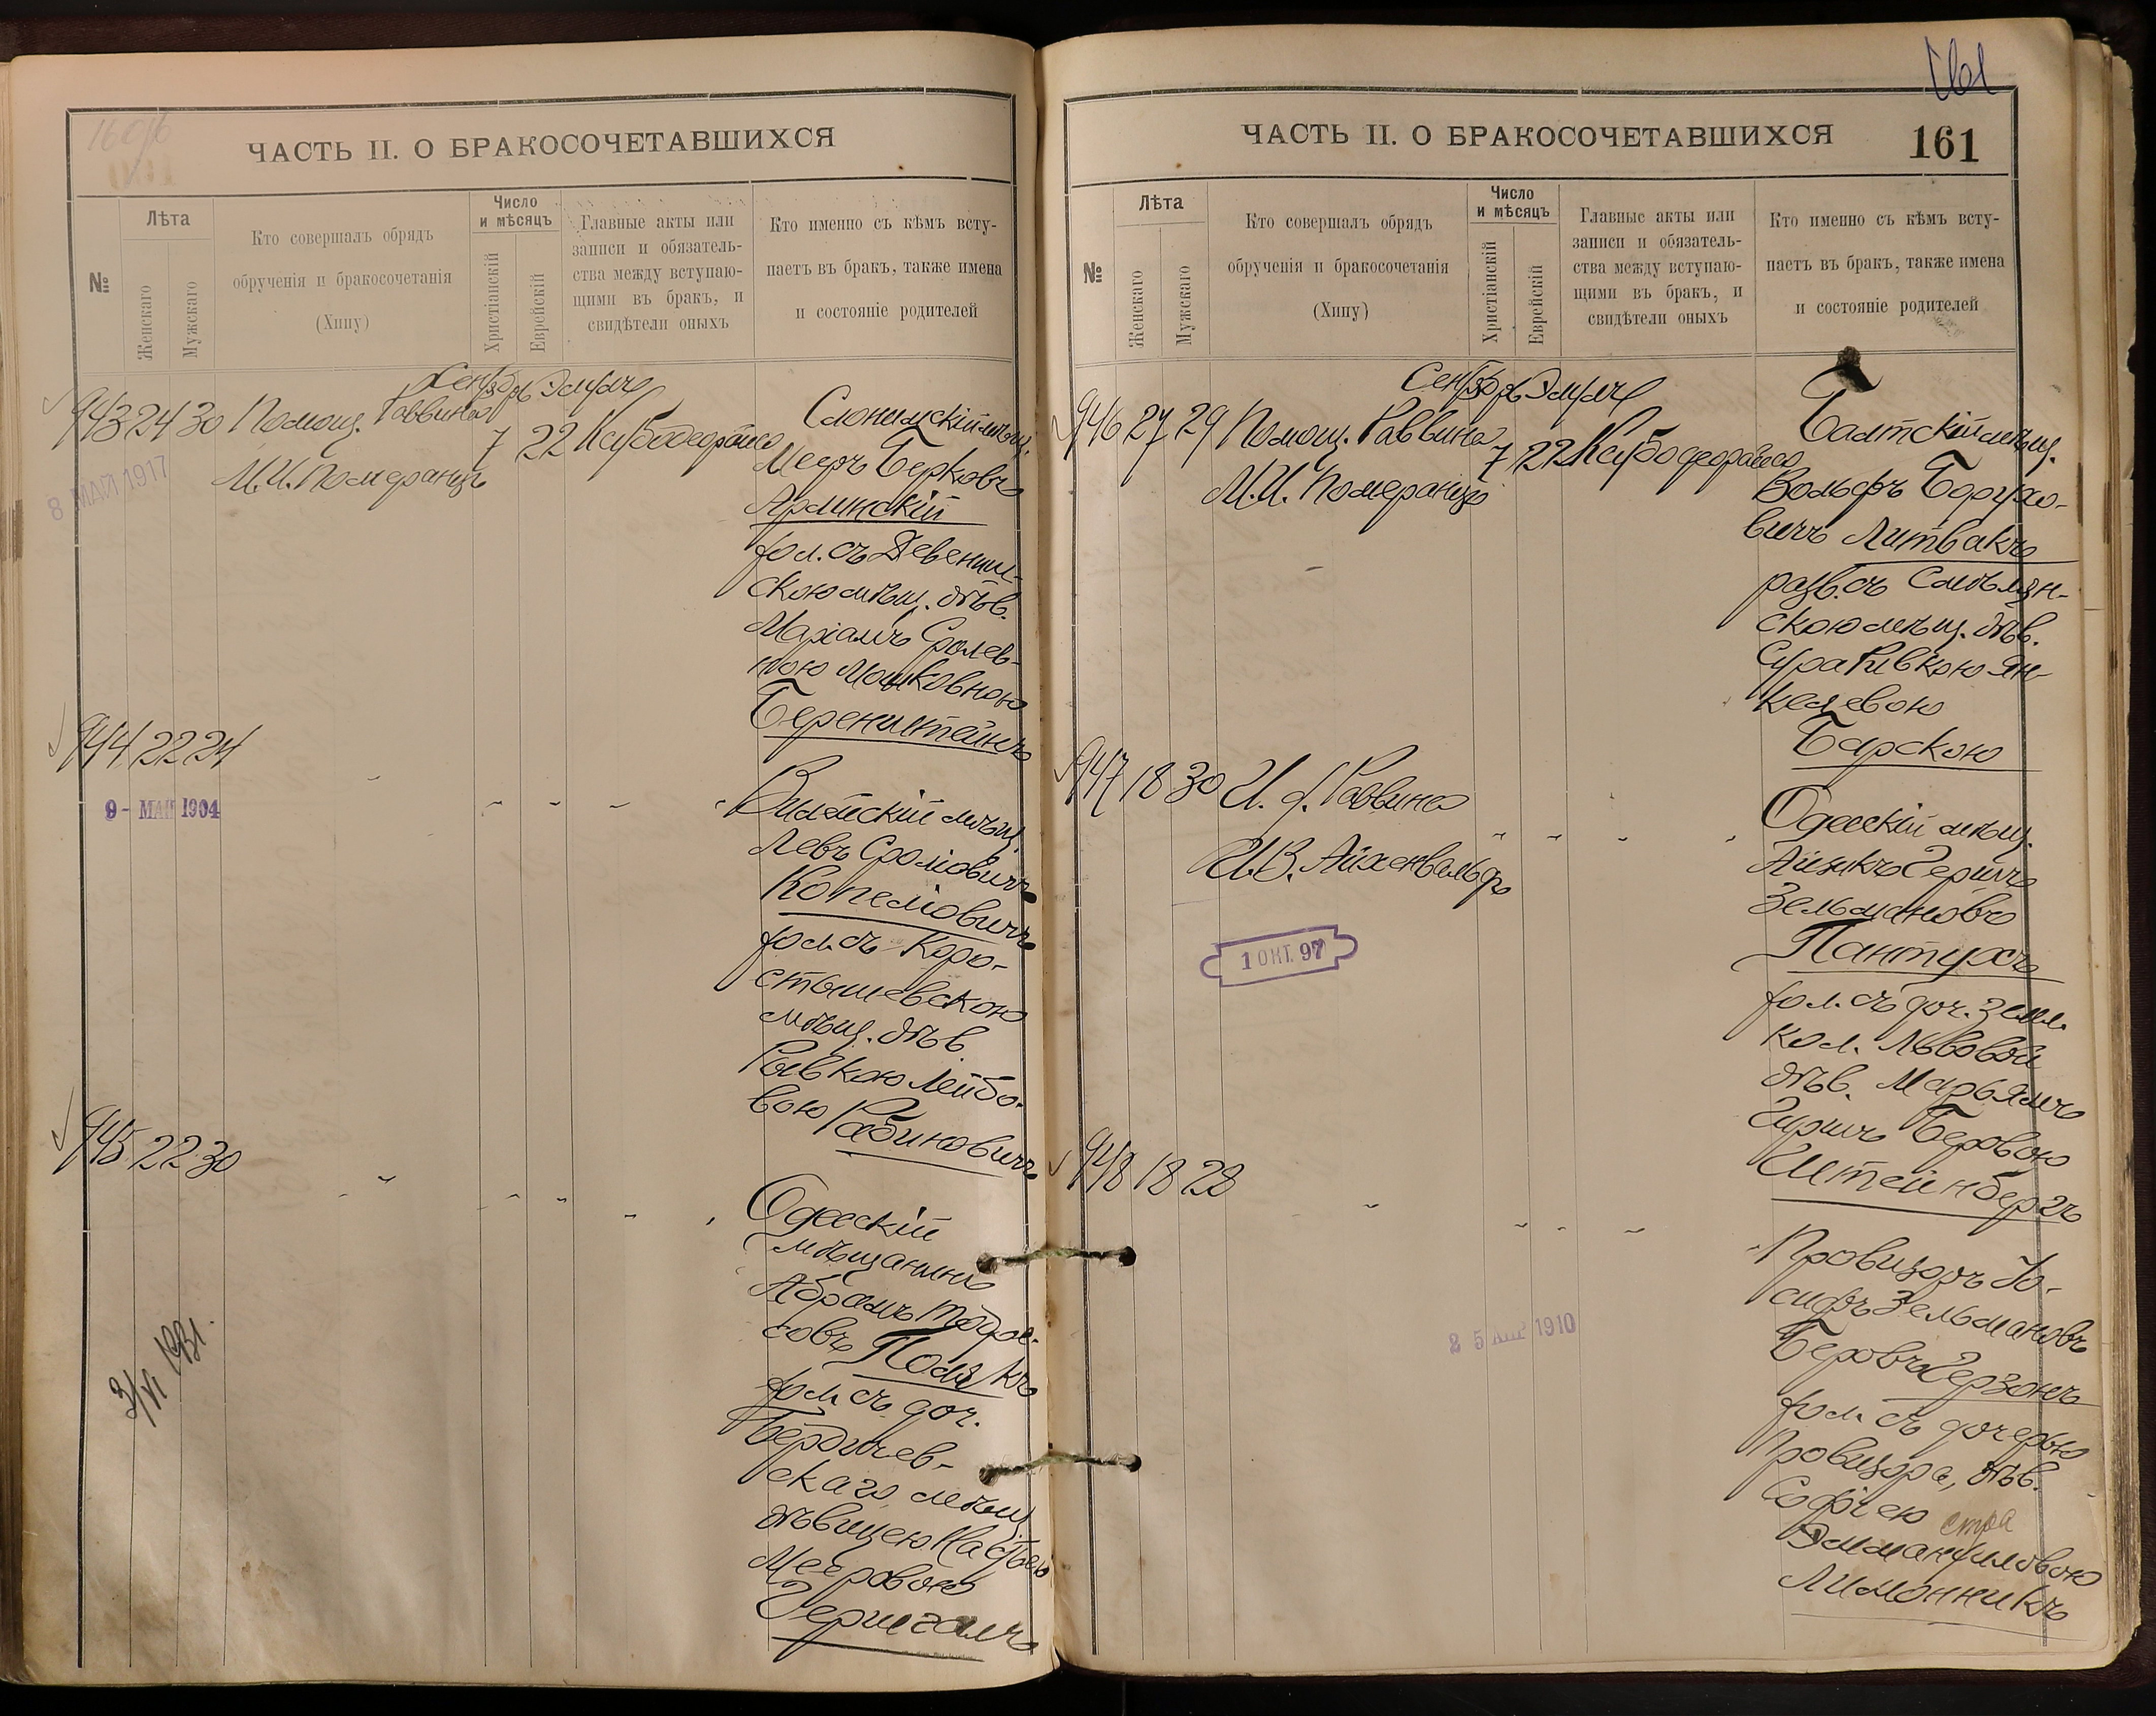 160/б
ЧАСТЬ II. О БРАКОСОЧЕТАВШИХСЯ
№
Лѣта
Женскаго
Мужскаго
Кто совершалъ обрядъ
обрученія и бракосочетанія
(Хипу)
Число
и мѣсяцъ
Христіанскій
Еврейскій
Главные акты или
записи и обязатель-
ства между вступаю-
щими въ бракъ, и
свидѣтели оныхъ
Кто именно съ кѣмъ всту-
паетъ въ бракъ, также имена
и состояніе родителей
Сентябрь Элулъ
943 24 30 Помощ. Раввина 7 22
М.И. Померанцъ
8 МАЙ 1917
Слонимскій мѣщ.
Мееръ Берковъ
Арлинскій
хол. съ Девениш-
скою мѣщ. дѣв.
Маріамъ Сролев-
ною Мошковною
Беренштейнъ
944 22 24
9 - МАЙ 1904
Вилейскій мѣщ.
Левъ Сроліовичъ
Копеліовичъ
хол. съ Коро-
стышевскою
мѣщ. дѣв.
Рывкою Лейбо-
вою Рабиновичъ
945 22 30
3/VI 1931.
Одесскій
мѣщанинъ
Абрамъ Тодре-
совъ Полякъ
хол. съ доч.
Бердичев-
скаго мѣщ.
дѣвицею
Мееровою
Герцгамъ
ЧАСТЬ II. О БРАКОСОЧЕТАВШИХСЯ
161
№
Лѣта
Женскаго
Мужскаго
Кто совершалъ обрядъ
обрученія и бракосочетанія
(Хипу)
Число
и мѣсяцъ
Христіанскій
Еврейскій
Главные акты или
записи и обязатель-
ства между вступаю-
щими въ бракъ, и
свидѣтели оныхъ
Кто именно съ кѣмъ всту-
паетъ въ бракъ, также имена
и состояніе родителей
Сентябрь Элулъ
946 27 29 Помощ. Раввина 7 22
М.И. Померанцъ
Балтскій мѣщ.
Вольфъ Борухо-
вичъ Литвакъ
разв. съ Смѣлян-
скою мѣщ. дѣв.
Сура Ривкою Ян-
келевою
Барскою
947 18 30 И. д. Раввина
И.В. Айхенвальдъ
1 ОКТ. 97
Одесскій мѣщ.
Айзикъ Гершъ
Зельмановъ
Пантухъ
хол. съ доч. земл.
кол. Львовой
дѣв. Марьямъ
Гиршъ Беровою
Штейнбергъ
948 18 28
25 АПР 1910
Провизоръ Іо-
сифъ Зельмановъ
Беровъ Герзонъ
хол. съ дочерью
Провизора, дѣв.
Софіею
Эммануиловою
Лимонникъ